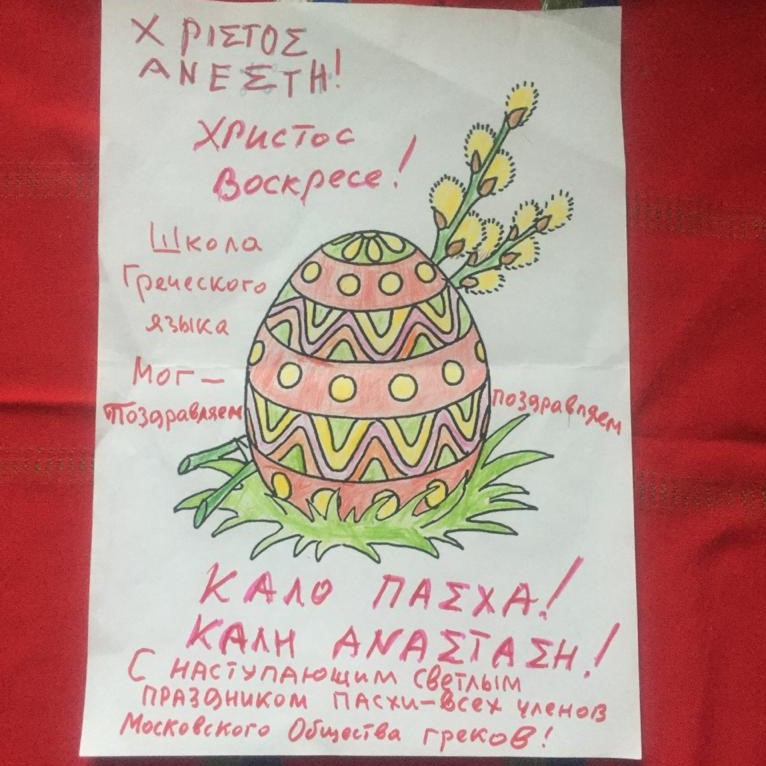 ΧΡΙΣΤΟΣ
ΑΝΕΣΤΗ!
Христос
Воскресе!
Школа
Греческого
языка
Мог–
Поздравляем
поздравляем
ΚΑΛΟ ΠΑΣΧΑ!
ΚΑΛΗ ΑΝΑΣΤΑΣΗ!
С наступающим светлым
праздником Пасхи–всех членов
Московского Общества греков!